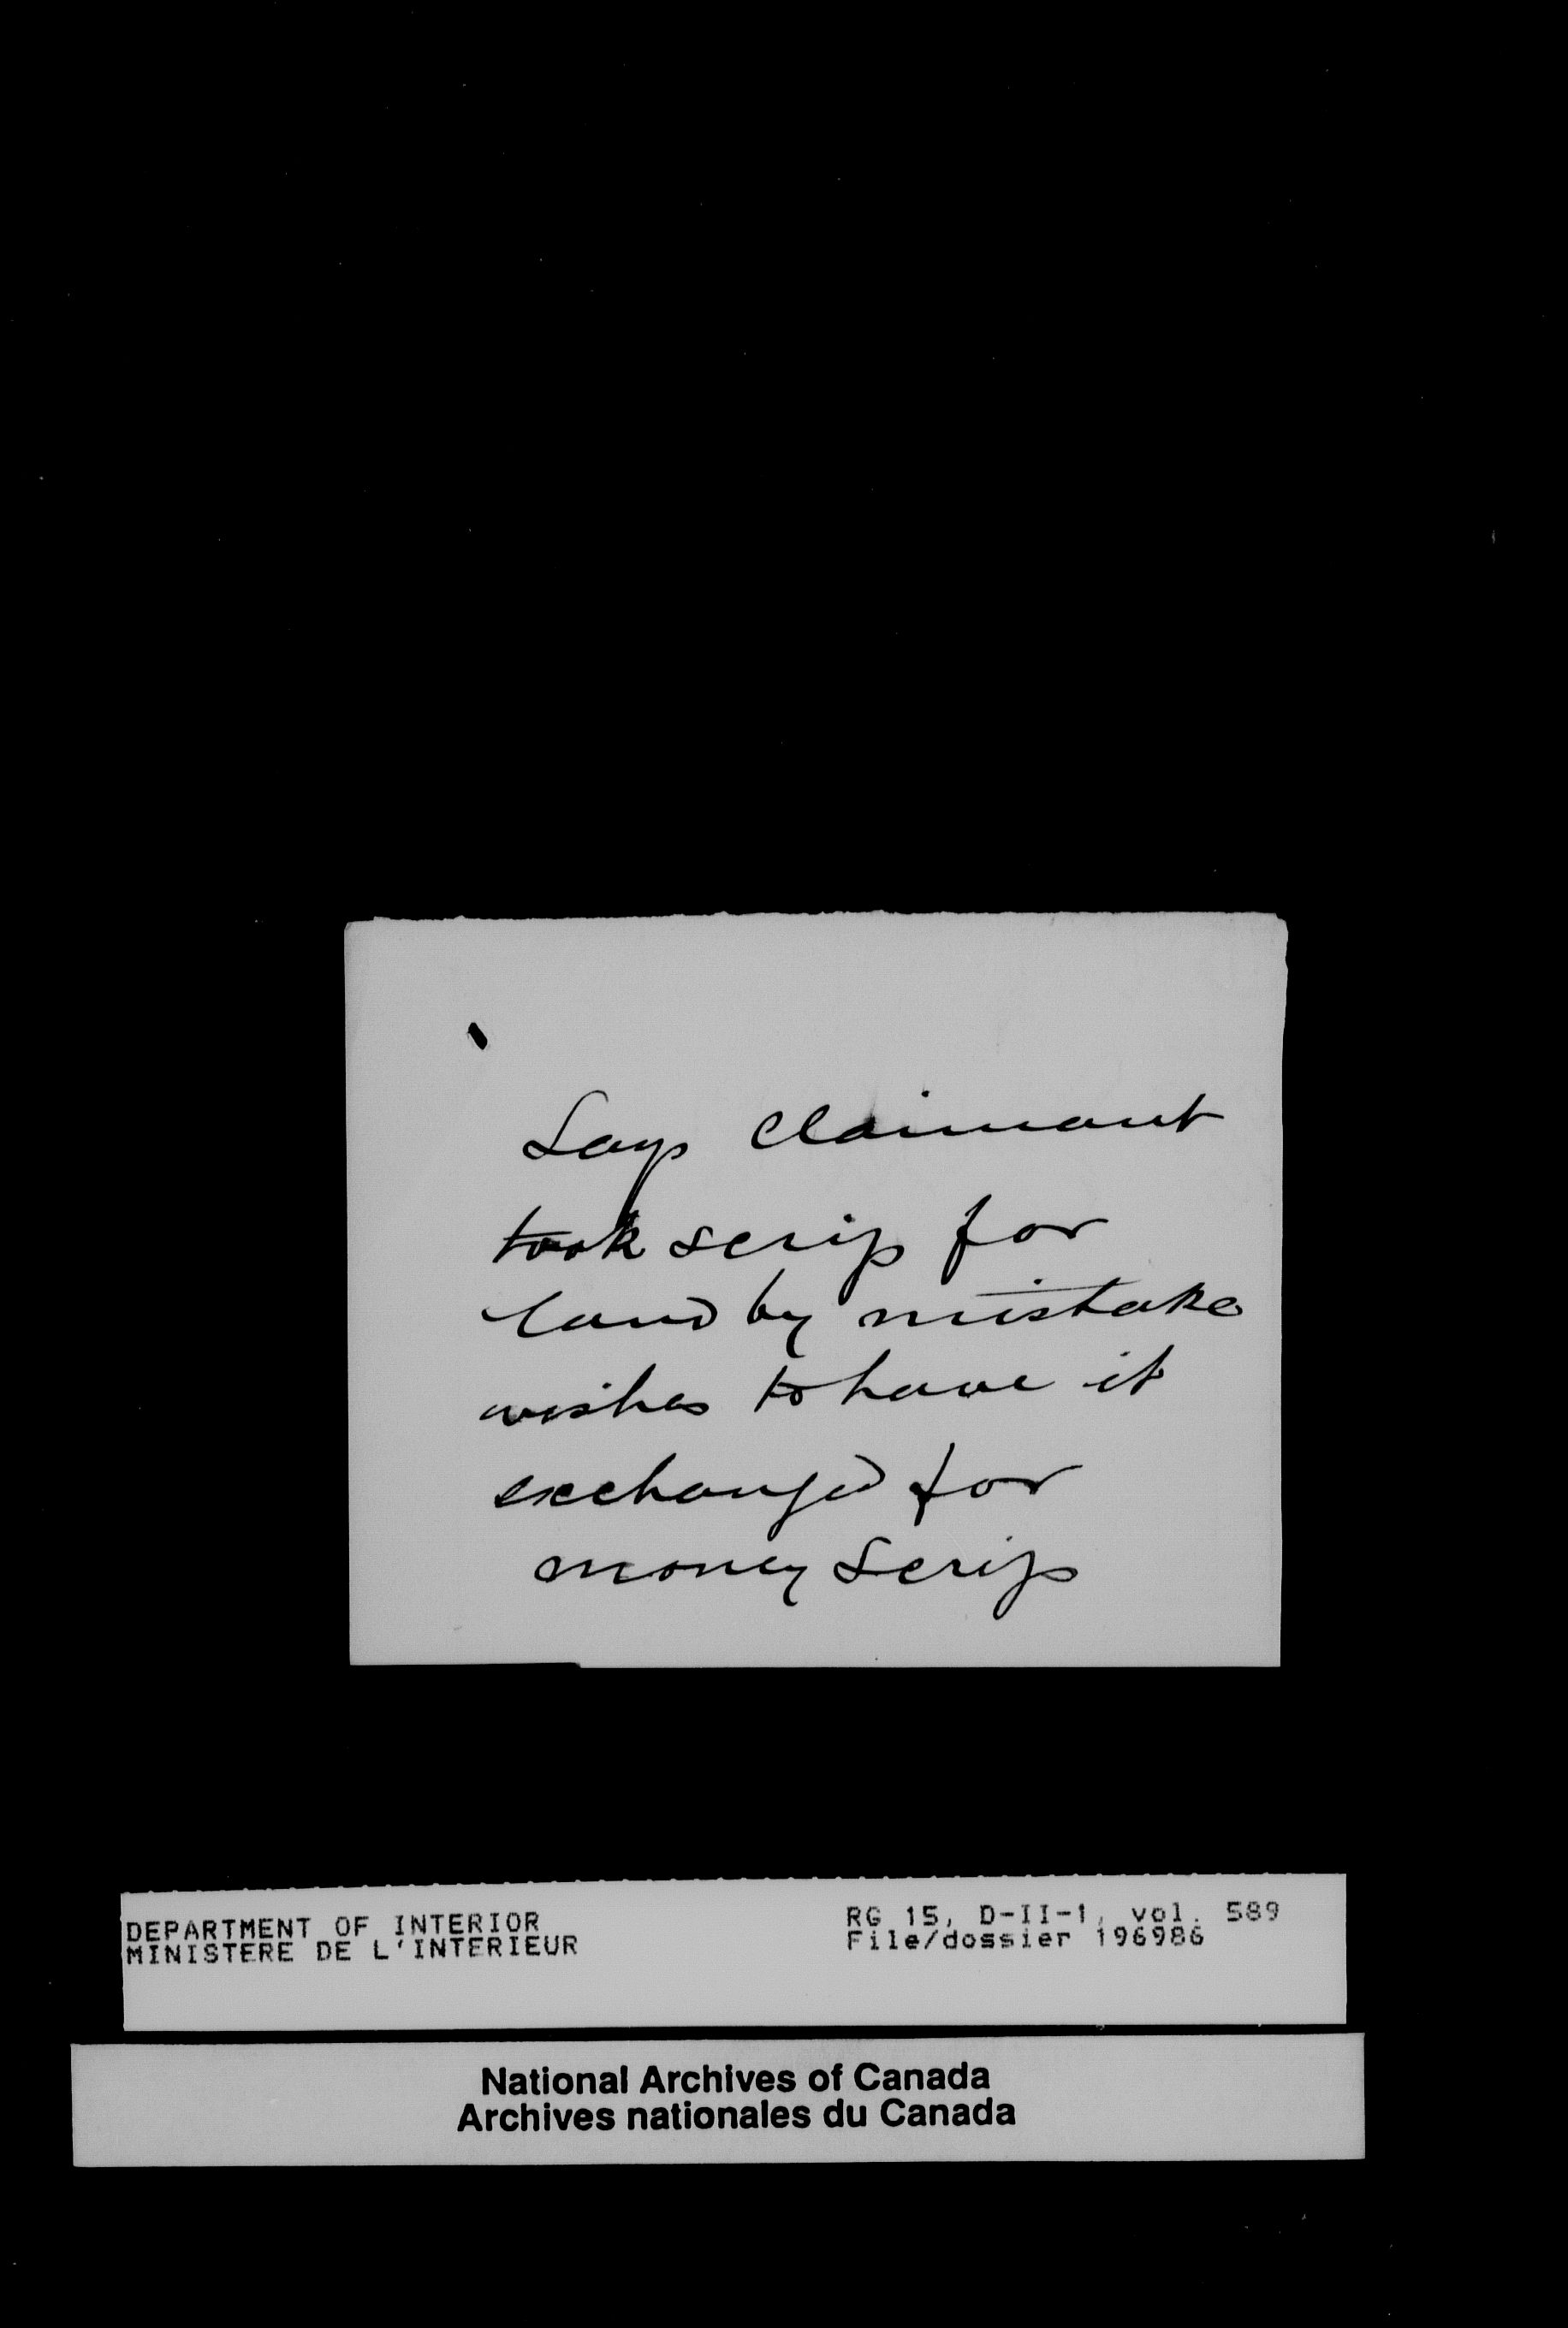 Says Claimant
took scrip for
land by mistake
wishes to have it
exchanged for
money Scrip
DEPARTMENT OF INTERIOR
MINISTERE DE L'INTERIEUR
RG 15, D-II-1, vol. 589
File/dossier 196986
National Archives of Canada
Archives nationales du Canada